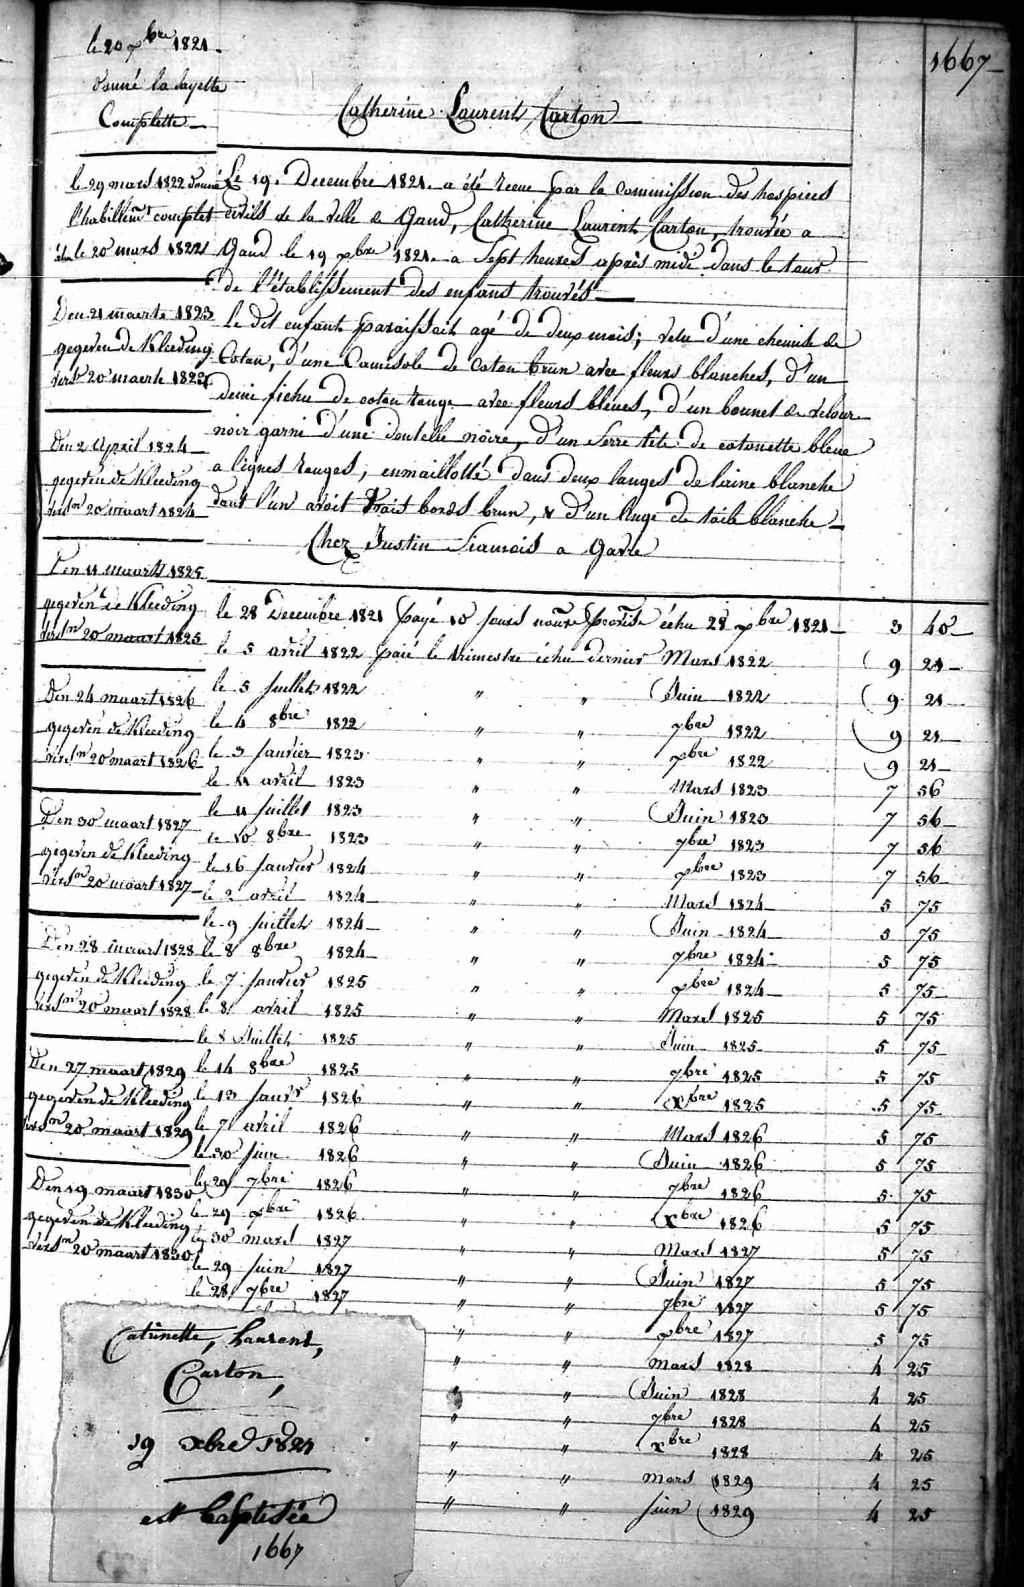 1667
le 20 xbre 1821
donné la layette
Complette
Catherine Laurent Carton
le 29 mars 1822 donné
l'habillemt complet
le 20 mars 1822
Le 19. Decembre 1821. a été recue par la commission des hospices
civils de la ville de Gand, Catherine Laurent Carton, trouvée a
Gand le 19 xbre 1821. a Sept heures après midi dans le tour
de l'établissement des enfans trouvés
Le dit enfant paraissait agé de deux mois; vetu d'une chemise de
Coton, d'une Camisole de coton brun avec fleurs blanches, d'un
demi fichu de coton rouge avec fleurs bleues, d'un bonnet de velour
noir garni d'une dentelle noire, d'un Serre tête de cotonette bleue
a lignes rouges, enmaillotté dans deux langes de laine blanche
dont l'un avoit trois bords brun, & d'un linge de toile blanche
Chez Justin Francois a Gavre
Den 21 maerte 1823
gegeven de Kleeding
versn 20 maerte 1823
Den 2 April 1824
gegeven de Kleeding
versn 20 maart 1824
Den 11 maarts 1825
gegeven de Kleeding
versn 20 maart 1825
Den 24 maart 1826
gegeven de Kleeding
versn 20 maart 1826
Den 30 maart 1827
gegeven de Kleeding
versn 20 maart 1827
Den 28 maart 1828
gegeven de Kleeding
versn 20 maart 1828
Den 27 maart 1829
gegeven de Kleeding
versn 20 maart 1829
Den 19 maart 1830
gegeven de Kleeding
versn 20 maart 1830
le 28 Decembre 1821 payé 10 jours échu 28 xbre 1821 3 40
le 5 avril 1822 payé le trimestre échu dernier Mars 1822 9 21
le 5 Juillet 1822 " " Juin 1822 9 21
le 4 8bre 1822 " " 7bre 1822 9 21
le 3 Janvier 1823 " " xbre 1822 9 21
le 11 avril 1823 " " Mars 1823 7 56
le 11 Juillet 1823 " " Juin 1823 7 56
le 10 8bre 1823 " " 7bre 1823 7 56
le 16 Janvier 1824 " " xbre 1823 7 56
le 2 avril 1824 " " Mars 1824 5 75
le 9 Juillet 1824 " " Juin 1824 5 75
le 8 8bre 1824 " " 7bre 1824 5 75
le 7 Janvier 1825 " " xbre 1824 5 75
le 8 avril 1825 " " Mars 1825 5 75
le 8 Juillet 1825 " " Juin 1825 5 75
le 14 8bre 1825 " " 7bre 1825 5 75
le 13 Janvr 1826 " " xbre 1825 5 75
le 7 avril 1826 " " Mars 1826 5 75
le 30 Juin 1826 " " Juin 1826 5 75
le 29 7bre 1826 " " 7bre 1826 5 75
le 29 xbre 1826 " " xbre 1826 5 75
le 30 mars 1827 " " Mars 1827 5 75
le 29 Juin 1827 " " Juin 1827 5 75
le 28 7bre 1827 " " 7bre 1827 5 75
" " xbre 1827 5 75
" " Mars 1828 4 25
" Juin 1828 4 25
" " 7bre 1828 4 25
" " xbre 1828 4 25
" " Mars 1829 4 25
" " Juin 1829 4 25
Catrinette, Laurent,
Carton,
19 xbre 1821
est baptisée
1667